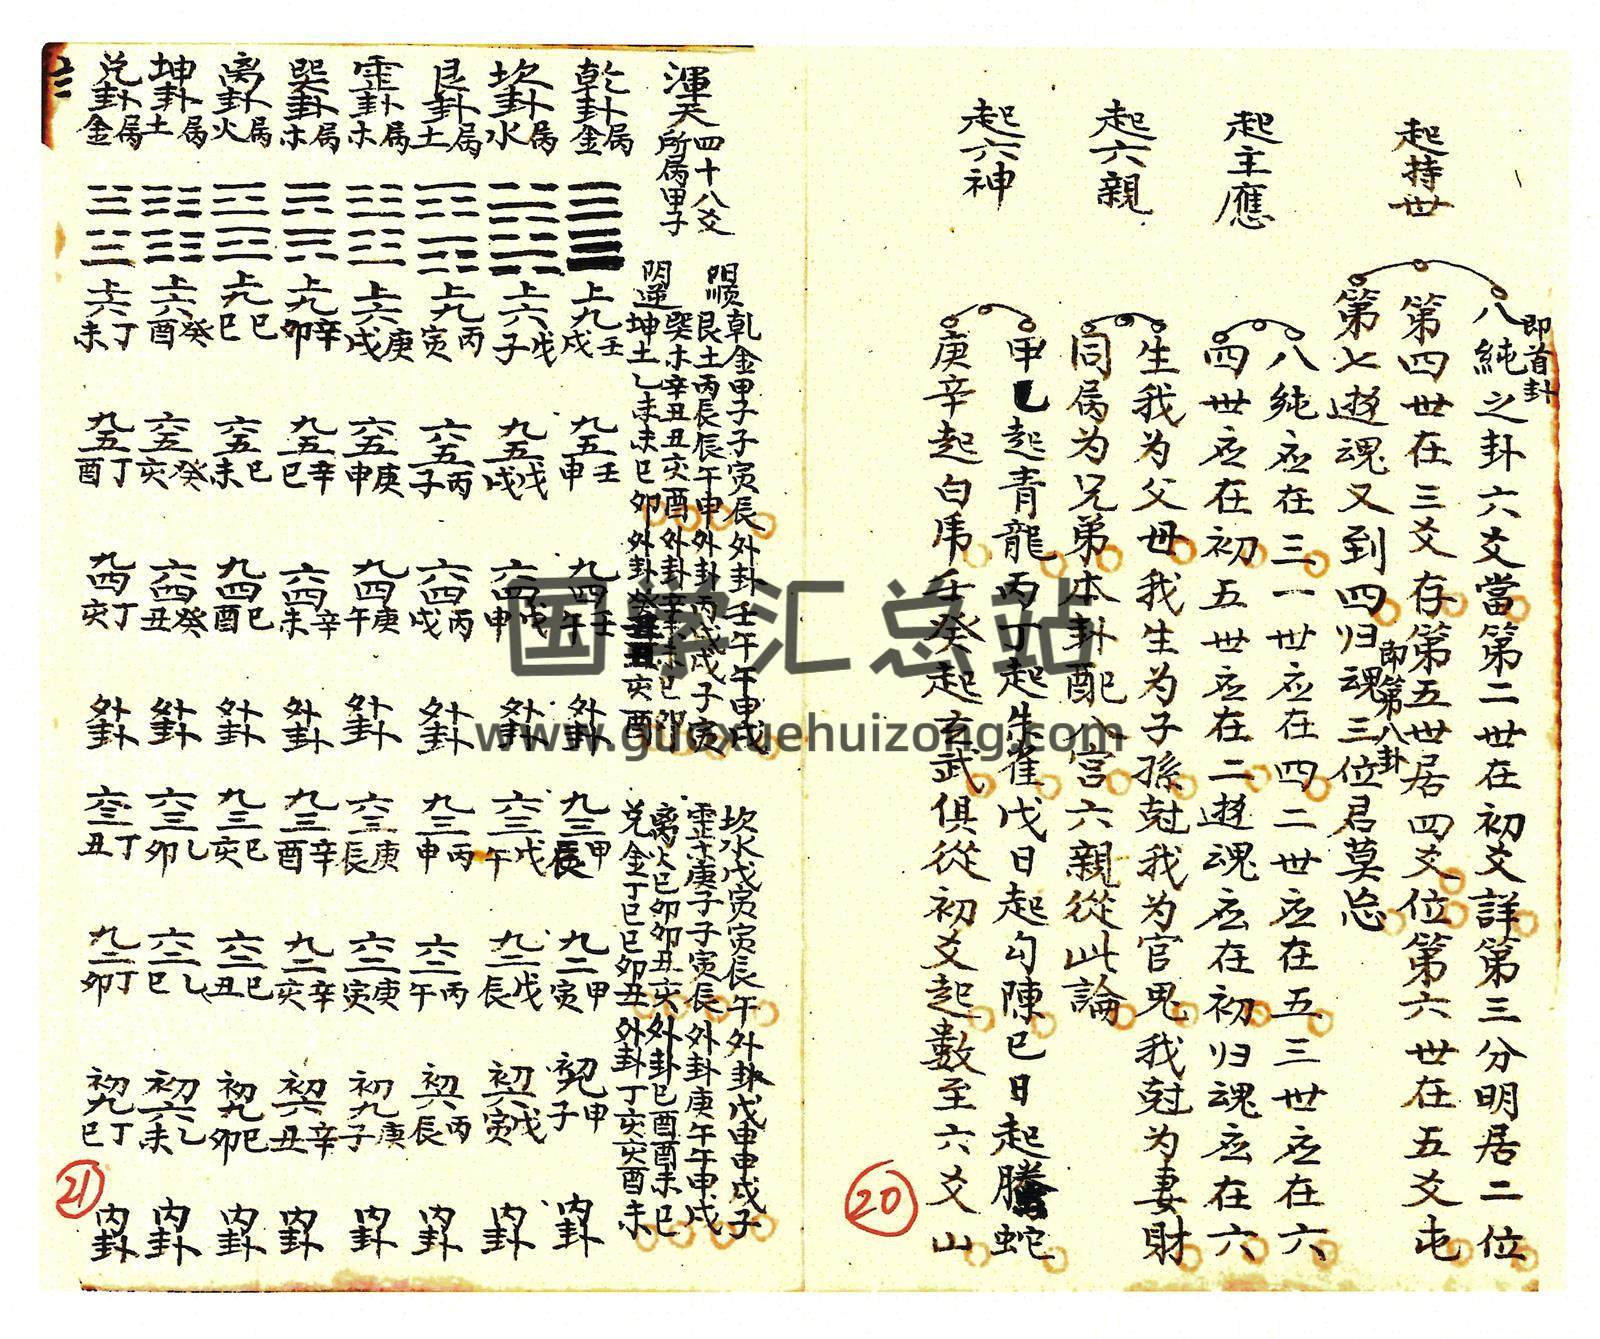 起持世
八純之卦六爻當第二世在初爻詳第三分明居二位
即首卦
第四世在三爻存第五世居四爻位第六世在五爻屯
第七遊魂又到四归魂三位君莫忘
即第八卦
起主應
八純应在三一世应在四二世应在五三世应在六
四世应在初五世应在二遊魂应在初归魂应在六
起六親
生我为父母我生为子孫尅我为官鬼我尅为妻財
同属为兄弟本卦配八宫六親從此論
起六神
甲乙起青龍丙丁起朱雀戊日起勾陳己日起騰蛇
庚辛起白虎壬癸起玄武俱從初爻起數至六爻山
20
渾天四十八爻
所属甲子
陽順
乾金甲子子寅辰外卦壬午午申戌
艮土丙辰辰午申外卦丙戌戌子寅
陰逆
巽木辛丑丑亥酉外卦辛未未巳卯
坤土乙未未巳卯外卦癸丑丑亥酉
坎水戊寅寅辰午外卦戊申申戌子
震木庚子子寅辰外卦庚午午申戌
离火己卯卯丑亥外卦己酉酉未巳
兌金丁巳巳卯丑外卦丁亥亥酉未
乾卦属金
上九壬戌
九五壬申
九四壬午
外卦
九三甲辰
九二甲寅
初九甲子
内卦
坎卦属水
上六戊子
九五戊戌
六四戊申
外卦
六三戊午
九二戊辰
初六戊寅
内卦
艮卦属土
上九丙寅
六五丙子
六四丙戌
外卦
九三丙申
六二丙午
初六丙辰
内卦
震卦属木
上六庚戌
六五庚申
九四庚午
外卦
六三庚辰
六二庚寅
初九庚子
内卦
巽卦属木
上九辛卯
九五辛巳
六四辛未
外卦
九三辛酉
九二辛亥
初六辛丑
内卦
离卦属火
上九己巳
六五己未
九四己酉
外卦
九三己亥
六二己丑
初九己卯
内卦
坤卦属土
上六癸酉
六五癸亥
六四癸丑
外卦
六三乙卯
六二乙巳
初六乙未
内卦
兌卦属金
上六丁未
九五丁酉
九四丁亥
外卦
六三丁丑
九二丁卯
初九丁巳
内卦
21
国学汇总站
www.guoxuehuizong.com